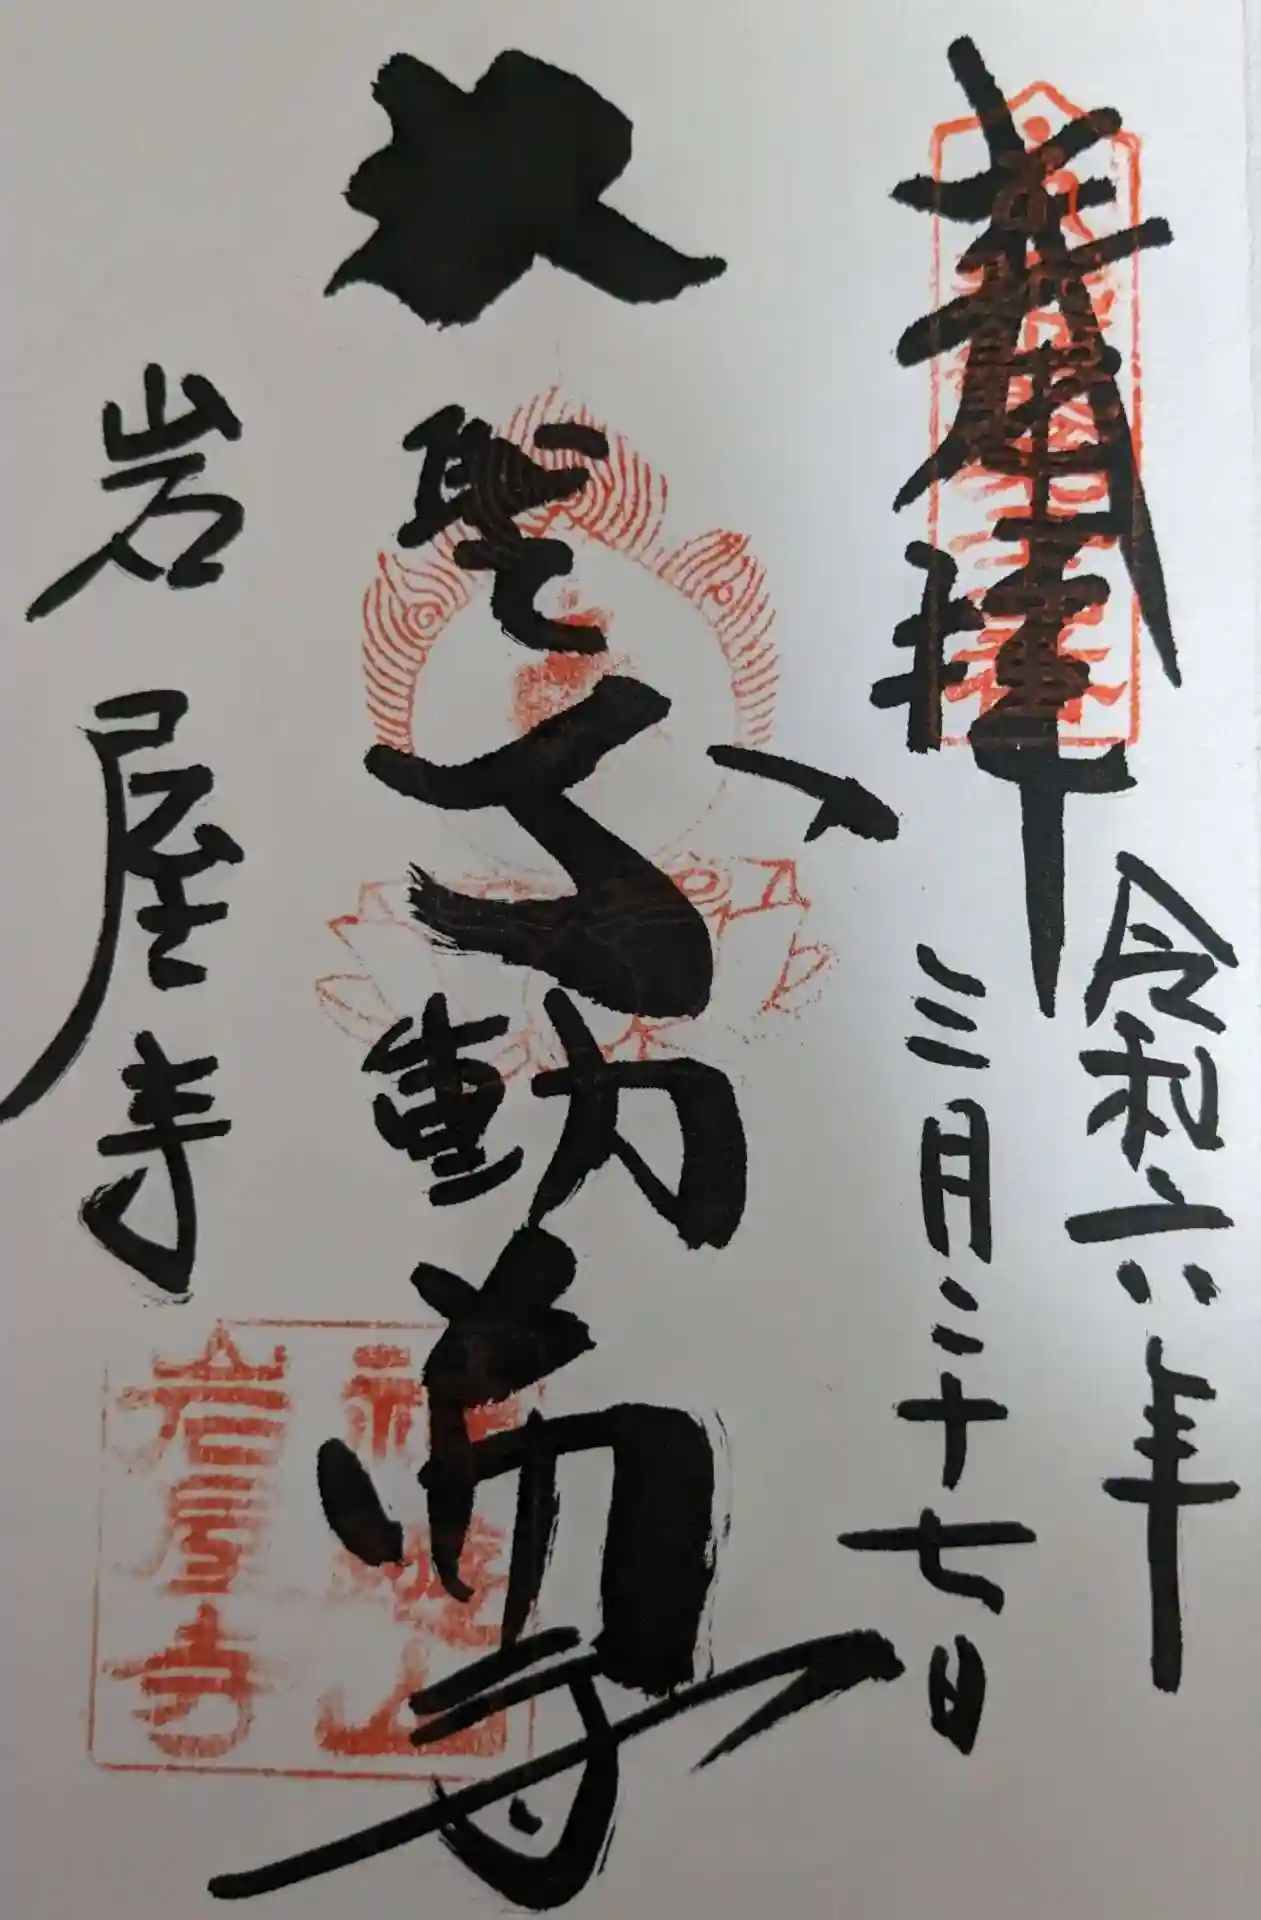 奉拝
令和六年
三月二十七日
大聖不動尊
岩屋寺
神遊山
岩屋寺